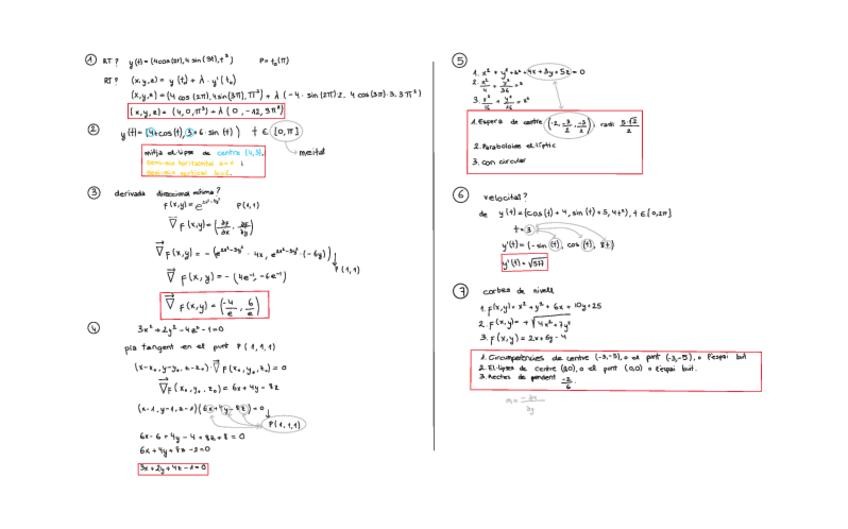 ① RT? γ(t)=(4cos(2t),4 sin(3t),t³) P=t₀(π)
RT? (x,y,z)= γ(t₀)+ λ·γ'(t₀)
(x,y,z)=(4 cos(2π),4 sin(3π),π³)+ λ(-4·sin(2π)·2, 4 cos(3π)·3, 3π²)
(x,y,z)=(4,0,π³)+ λ(0,-12,3π²)
② γ(t)=(4+cos(t),3+6·sin(t)) t∈[0,π]
meitat
mitja el·lipse de centre (4,3),
③ derivada direccional mínima?
P(1,1)
∇F(x,y)=(∂F/∂x, ∂F/∂y)
P(1,1)
∇F(x,y)=-(4e⁻¹,-6e⁻¹)
∇F(x,y)=(-4/e, 6/e)
④ 3x²+2y²-4z²-1=0
pla tangent en el punt P(1,1,1)
(x-x₀,y-y₀,z-z₀)·∇F(x₀,y₀,z₀)=0
∇F(x₀,y₀,z₀)=6x+4y-8z
(x-1,y-1,z-1)(6x+4y-8z)=0
P(1,1,1)
6x-6+4y-4+8z+8=0
3x+2y+4z-1=0
⑤
1. x²+y²+z²+4x+3y+5z=0
1. Espera de centre (-2,-3/2,-5/2), radi 5·√2/2
2. Paraboloide el·líptic
3. con circular
⑥ velocitat?
de γ(t)=(cos(t)+4,sin(t)+5,4t²), t∈[0,2π]
t=3
γ'(t)=(-sin(t), cos(t), 8t)
γ'(t)=√577
⑦ corbes de nivell
1. F(x,y)=x²+y²+6x+10y+25
2. F(x,y)=+√4x²+7y²
3. F(x,y)=2x+6y-4
1. Circumferències de centre (-3,-5), o el punt (-3,-5), o l'espai buit
2. El·lipses de centre (0,0), o el punt (0,0) o l'espai buit.
3. Rectes de pendent -2/6.